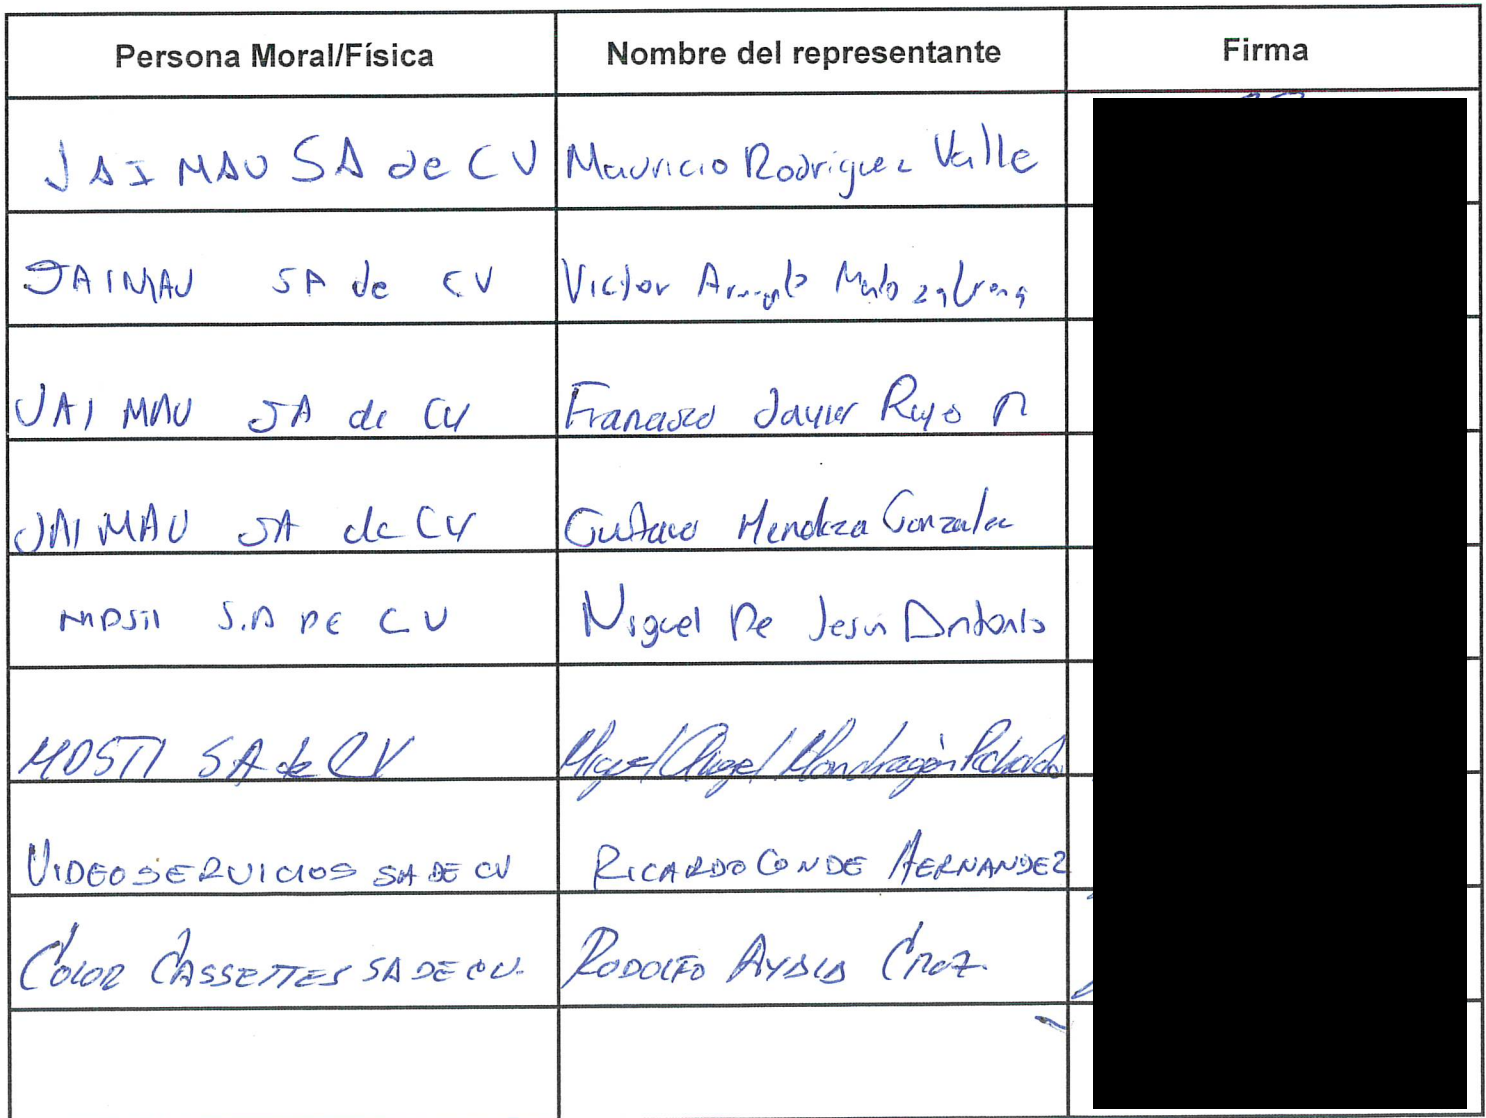 Persona Moral/Física Nombre del representante Firma
JAIMAU SA de CV Mauricio Rodriguez Valle
JAIMAU SA de CV Victor
JAIMAU SA de CV Francisco Javier Rujo M
JAIMAU SA de CV Gustavo Mendoza Gonzalez
S.A DE CV Miguel De Jesus Antonio
MDSTI SA de CV Miguel Angel Mondragón
VIDEOSERVICIOS SA DE CV RICARDO CONDE HERNANDEZ
COLOR CASSETTES SA DE CV. RODOLFO AYALA CRUZ.